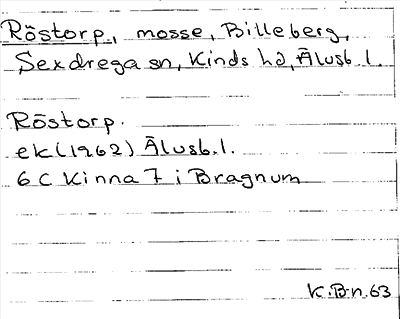 Röstorp, mosse, Billeberg,
Sexdrega sn, Kinds hd, Älvsb. l.
Röstorp.
ek (1962) Älvsb. l.
6 C Kinna 7 i Bragnum
K.Bn. 63